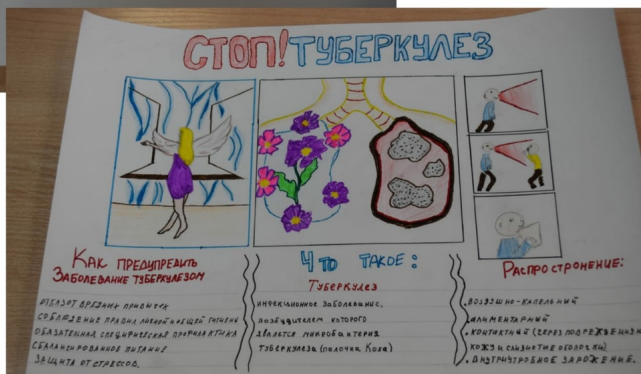 СТОП! ТУБЕРКУЛЕЗ
КАК ПРЕДУПРЕДИТЬ
ЗАБОЛЕВАНИЕ ТУБЕРКУЛЕЗОМ
ОТКАЗ ОТ ВРЕДНИХ ПРИВЫЧЕК
СОБЛЮДЕНИЕ ПРАВИЛ ЛИЧНОЙ И ОБЩЕЙ ГИГИЕНЫ
ОБЯЗАТЕЛЬНАЯ СПЕЦИФИЧЕСКАЯ ПРОФИЛАКТИКА
СБАЛАНСИРОВАННОЕ ПИТАНИЕ
ЗАЩИТА ОТ СТРЕССОВ.
ЧТО ТАКОЕ:
ТУБЕРКУЛЕЗ
ИНФЕКЦИОННОЕ ЗАБОЛЕВАНИЕ,
ВОЗБУДИТЕЛЕМ КОТОРОГО
ЯВЛЯЕТСЯ МИКРОБАКТЕРИЯ
ТУБЕРКУЛЕЗА (ПАЛОЧКА КОХА)
РАСПРОСТРОНЕНИЕ:
. ВОЗДУШНО-КАПЕЛЬНЫЙ
. АЛИМЕНТАРНЫЙ
. КОНТАКТНЫЙ (ЧЕРЕЗ
КОЖУ И СЛИЗИСТЫЕ ОБОЛОЧКИ)
. ВНУТРИУТРОБНОЕ ЗАРОЖЕНИЕ.